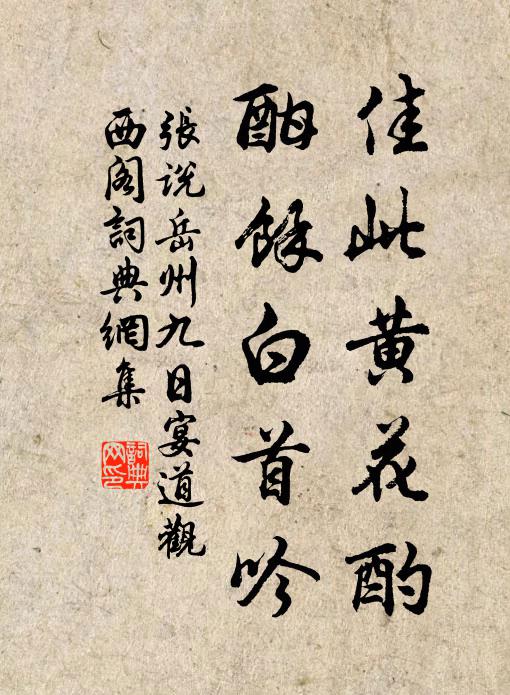 佳此黄花酌
酣餘白首吟
張说岳州九日宴道觀
西阁詞典網集
詞典
网印